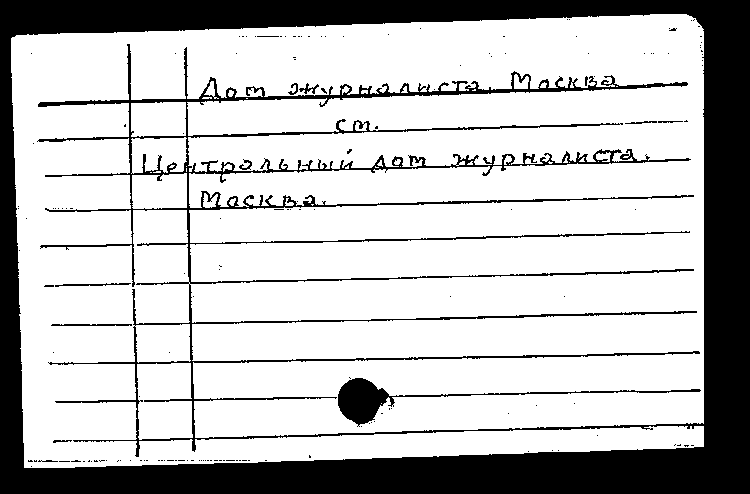 Дом журналиста. Москва
см.
Центральный дом журналиста.
Москва.